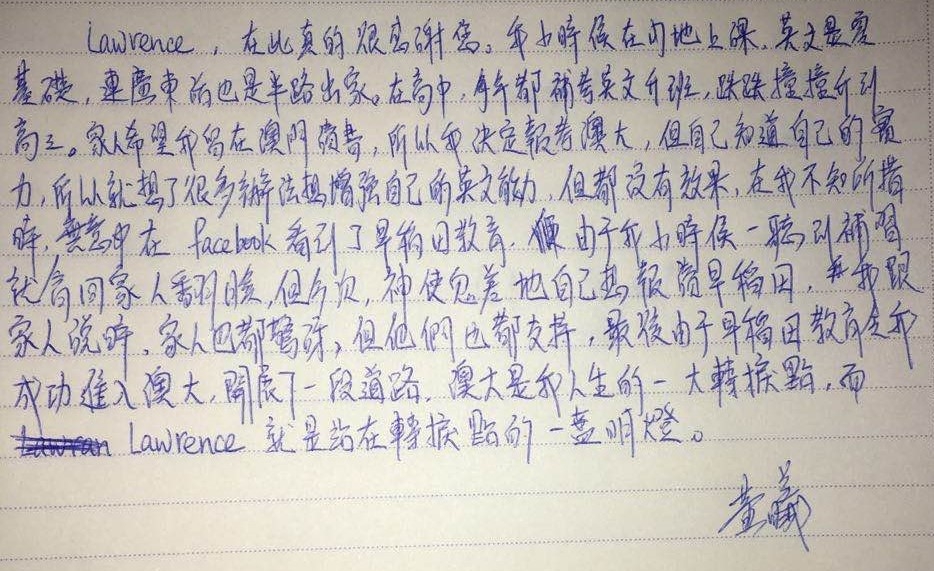 Lawrence，在此真的很多謝您。年小時候在內地上課，英文是零
基礎，連廣東話也是半路出家。在高中，年年都補考英文升班，跌跌撞撞升到
高三。家人希望我留在澳門讀書，所以我決定報考澳大，但自己知道自己的實
力，所以就想了很多辦法想增強自己的英文能力，但都沒有效果，在我不知所措
時，無意中在 facebook 看到了早稻田教育，由于我小時候一聽到補習
就會同家人翻臉，但今次，神使鬼差地自己想報讀早稻田，我跟
家人說時，家人也都驚訝，但他們也都支持，最後由于早稻田教育令我
成功進入澳大，開展了一段道路，澳大是我人生的一大轉捩點，而
Lawrence 就是站在轉捩點的一盞明燈。